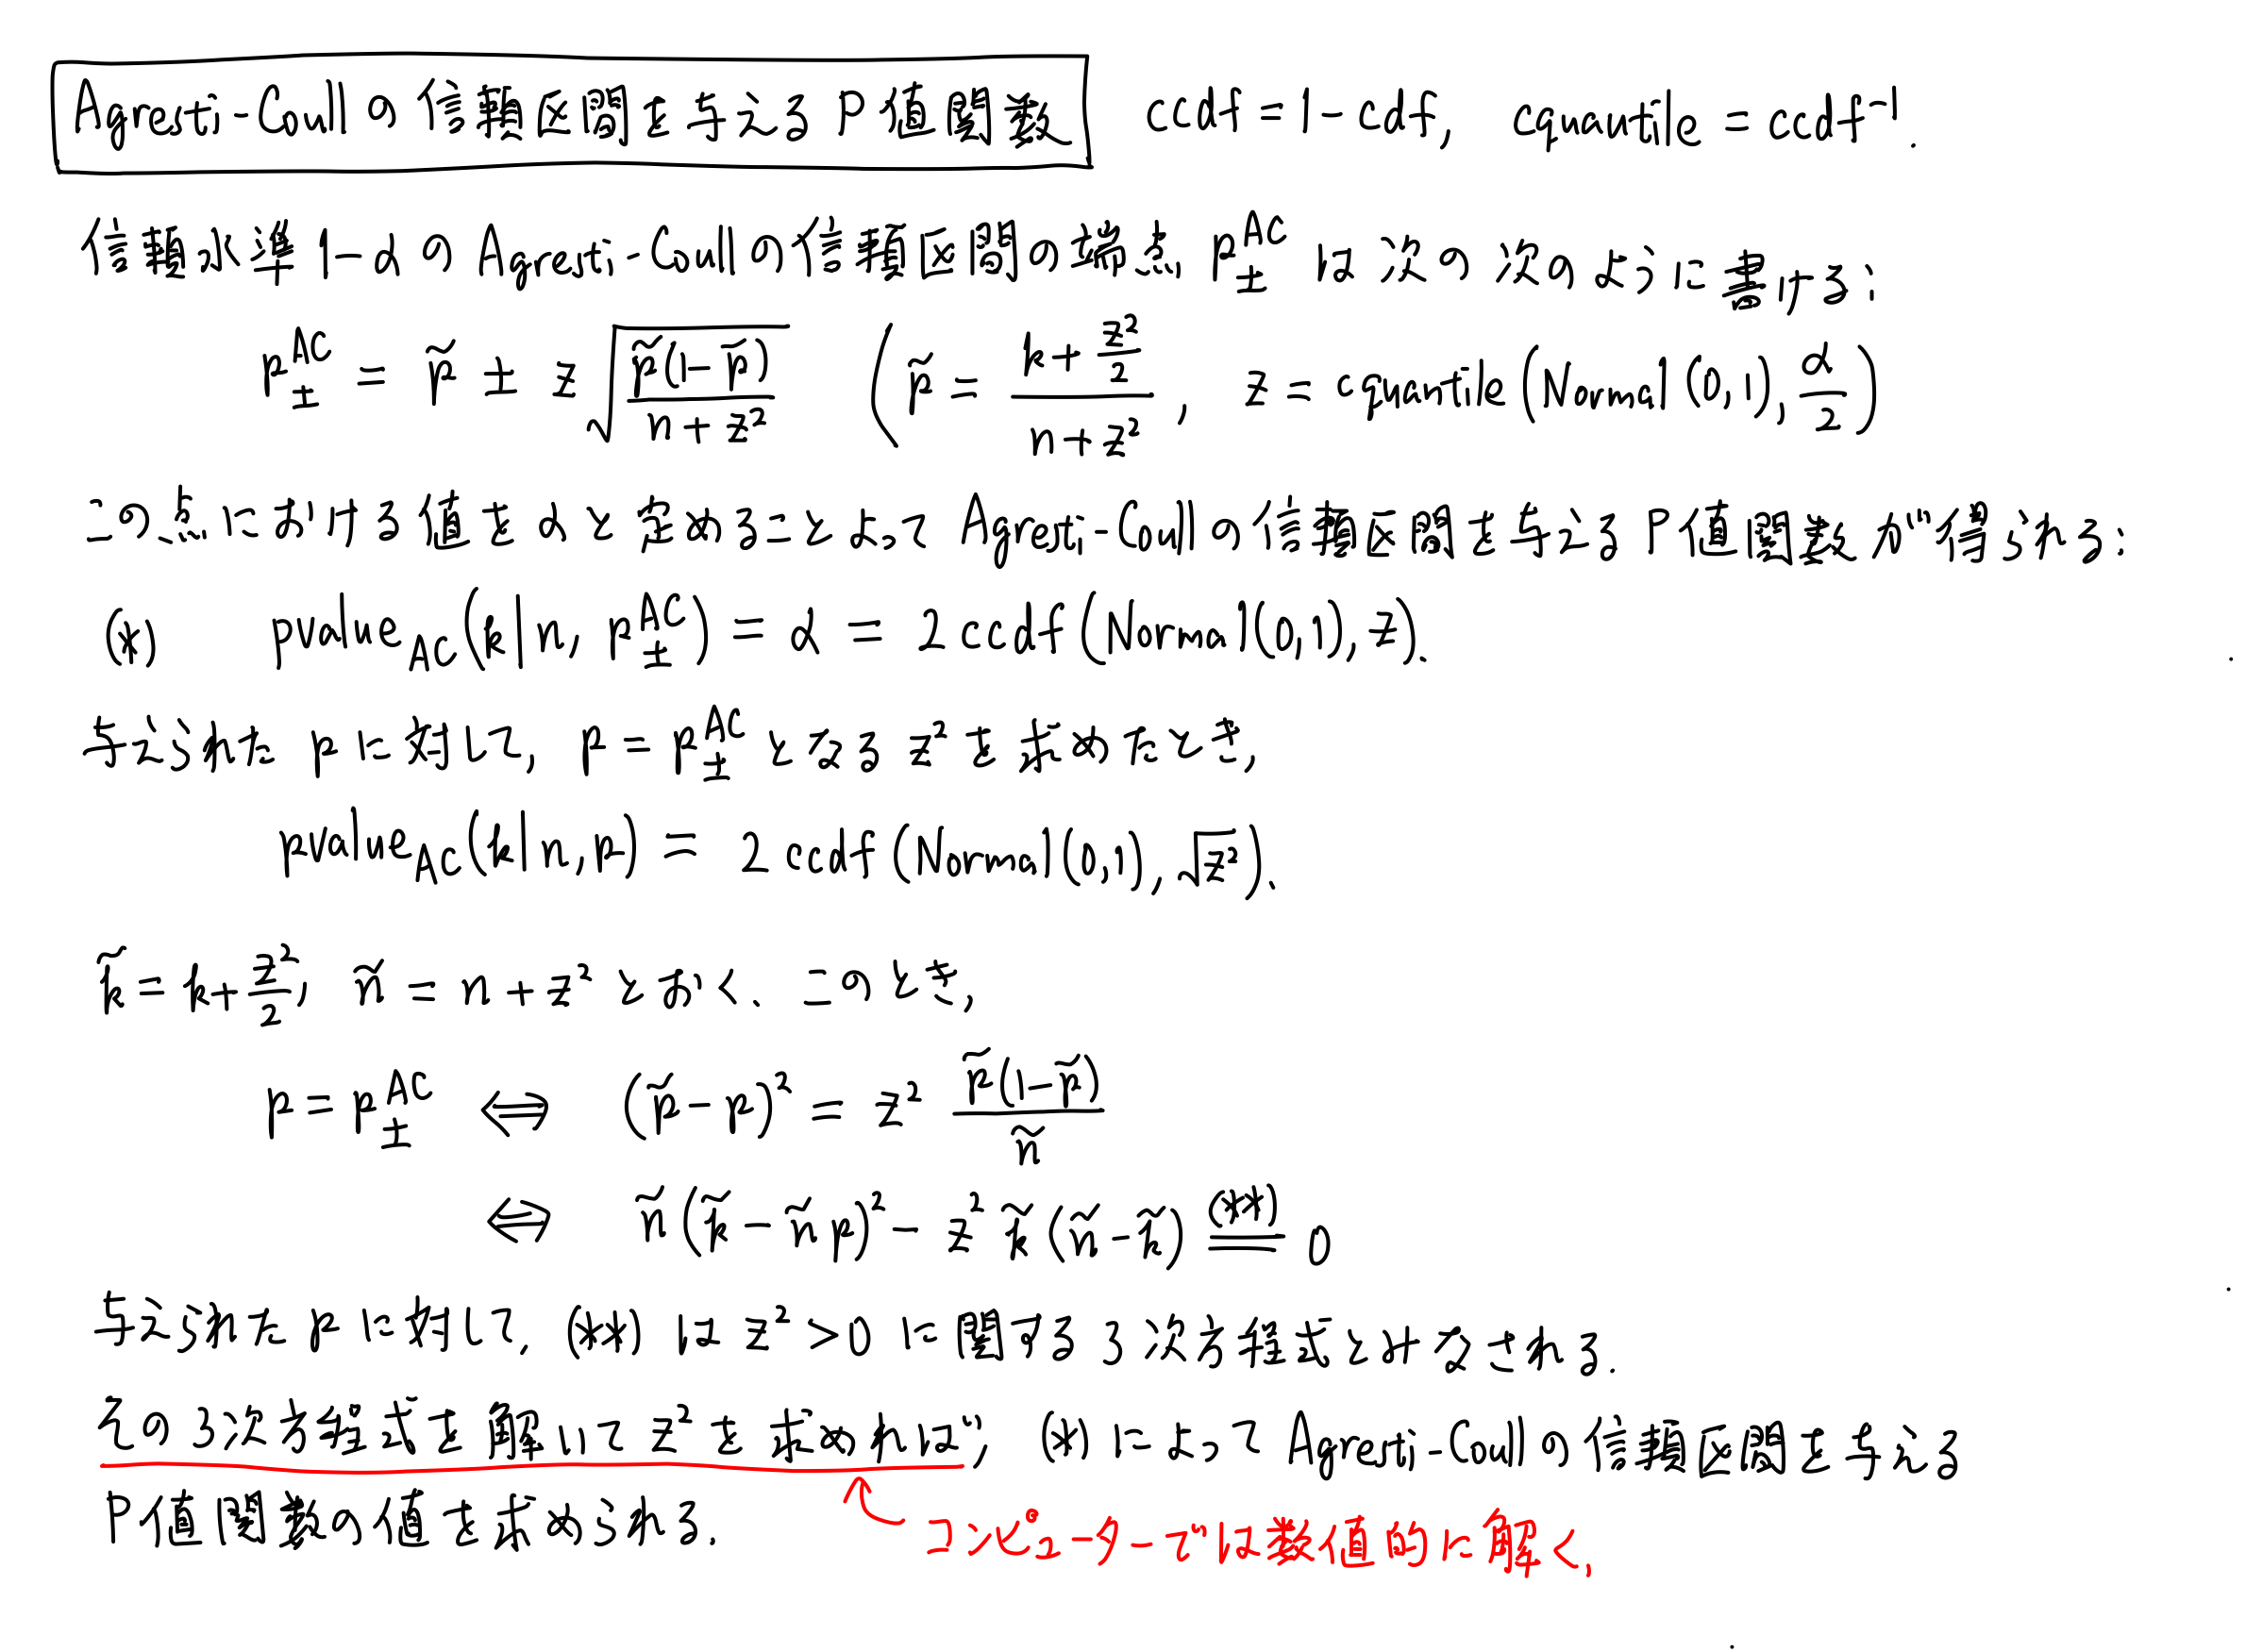 Agresti-Coull の信頼区間を与えるP値函数 ccdf = 1 - cdf, cquantile = ccdf⁻¹.
信頼水準 1-α の Agresti-Coull の信頼区間の端点 p±^AC は次の次のように書ける:
p±^AC = p̃ ± z√(p̃(1-p̃)/(n+z²)) (p̃ = (k+z²/2)/(n+z²), z = cquantile(Normal(0,1), α/2)
この点における値をαと定めることによって Agresti-Coull の信頼区間を与えるP値函数が得られる:
(*) pvalue_AC(k|n, p±^AC) = α = 2ccdf(Normal(0,1), z).
与えられた p に対して, p = p±^AC となる z² を求めたとき,
pvalue_AC(k|n, p) = 2 ccdf(Normal(0,1), √z²).
k̃ = k+z²/2, ñ = n+z² とおく. このとき,
p = p±^AC ⟺ (p̃-p)² = z² p̃(1-p̃)/ñ
⟺ ñ(k̃-ñp)² - z² k̃(ñ-k̃) (**)= 0
与えられた p に対して, (**) は z²>0 に関する3次方程式とみなされる.
その3次方程式を解いて z² を求めれば, (*) によって Agresti-Coull の信頼区間を与える
P値函数の値を求められる.
コンピューターでは数値的に解く.